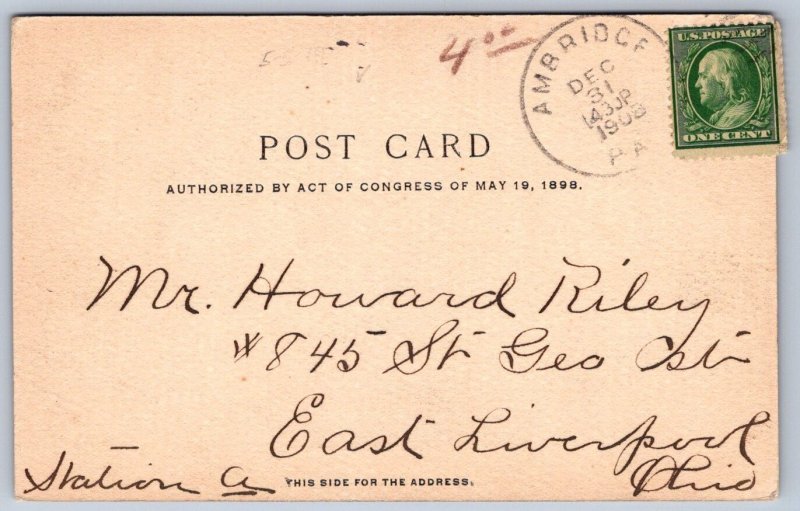 4⁰⁰
AMBRIDGE
DEC
31
1908
PA
U.S. POSTAGE
ONE CENT
POST CARD
AUTHORIZED BY ACT OF CONGRESS OF MAY 19, 1898.
Mr. Howard Riley
#845 St Geo St
East Liverpool
Station A
Ohio
THIS SIDE FOR THE ADDRESS.